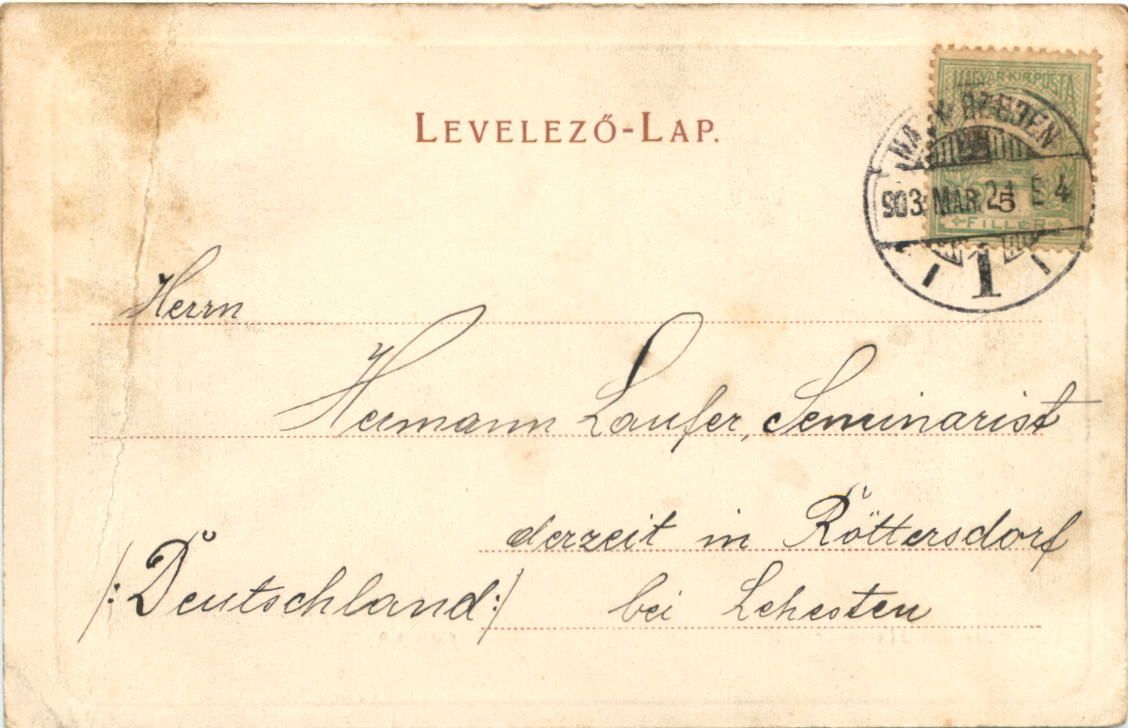 LEVELEZŐ-LAP.
MAGYAR·KIR·POSTA
5
FILLÉR
NAGYSZEBEN
903 MAR 21 E 4
1
Herrn
Hermann Laufer, Seminarist
derzeit in Röttersdorf
/: Deutschland :/ bei Lehesten